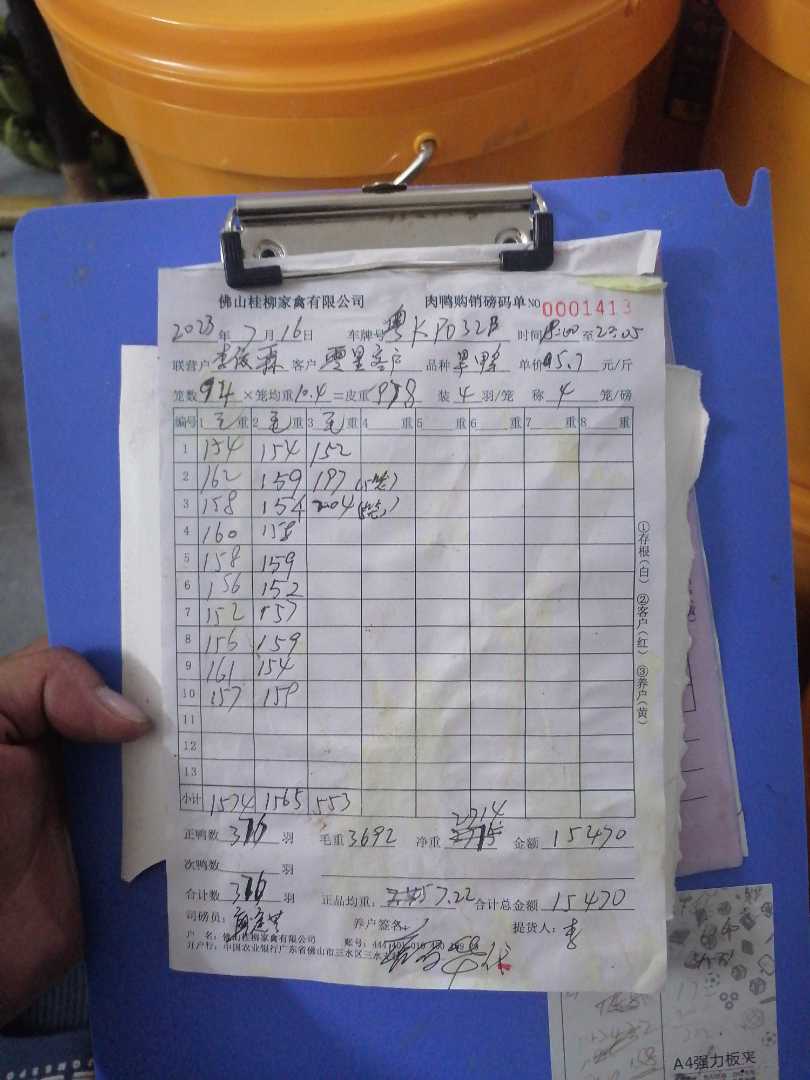 佛山桂柳家禽有限公司 肉鸭购销磅码单 NO 0001413
2023年7月16日 车牌号 粤KP032B 时间 :00至23:05
联营户 客户 客户 品种 单价 5.7 元/斤
笼数 94 ×笼均重 10.4 =皮重 978 装 4 羽/笼 称 4 笼/磅
编号 1 毛重 2 毛重 3 毛重 4 重 5 重 6 重 7 重 8 重
1 154 154 152
2 162 159 197 (5笼)
3 158 154 204 (5笼)
4 160 158
5 158 159
6 156 152
7 152 157
8 156 159
9 161 154
10 157 159
11
12
13
小计 1574 1565 553
2714
正鸭数 376 羽 毛重 3692 净重 金额 15470
次鸭数 羽
合计数 376 羽 正品均重: 7.22 合计总金额 15470
司磅员: 养户签名: 提货人: 李
户 名: 佛山桂柳家禽有限公司 账号: 444
开户行: 中国农业银行广东省佛山市三水区三水
①存根(白) ②客户(红) ③养户(黄)
A4强力板夹